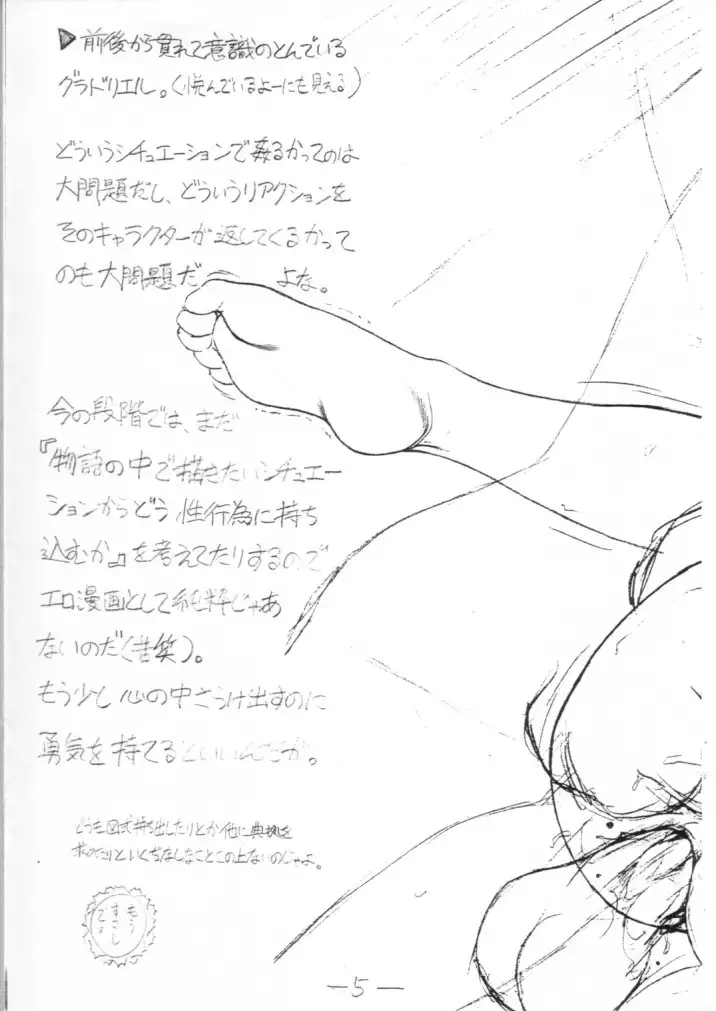 ▶前後から貫れて意識のとんでいる
グラドリエル。(悦んでいるよーにも見える)
どういうシチュエーションで姦るかってのは
大問題だし、どういうリアクションを
そのキャラクターが返してくるかって
のも大問題だ よな。
今の段階では、まだ
『物語の中で描きたいシチュエー
ションからどう性行為に持ち
込むか』を考えてたりするので
エロ漫画として純粋じゃあ
ないのだ(苦笑)。
もう少し心の中さらけ出すのに
勇気を持てるといいんだが。
どうも図式持ち出したりとか他に典拠を
求めたりといくぢなしなことこの上ないのじゃよ。
もう
すこし
でょ
—5—